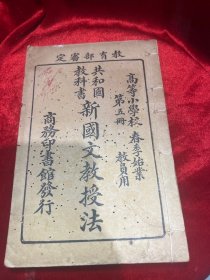 教育部審定
高等小學校 春季始業
第五冊 教員用
共和國
教科書
新國文教授法
商務印書館發行